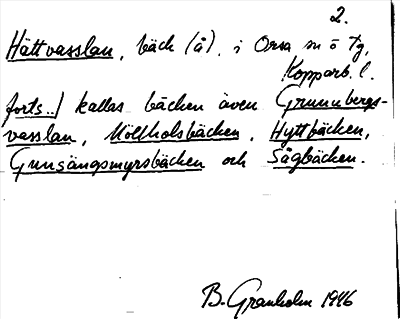 2.
Hättvasslan, bäck (å), i Orsa sn o tg,
Kopparb. l.
forts../ kallas bäcken även Grunnbergs-
vasslan, Möllholsbäcken, Hyttbäcken,
Grunsängsmyrsbäcken och Sågbäcken.
B. Granholm 1946